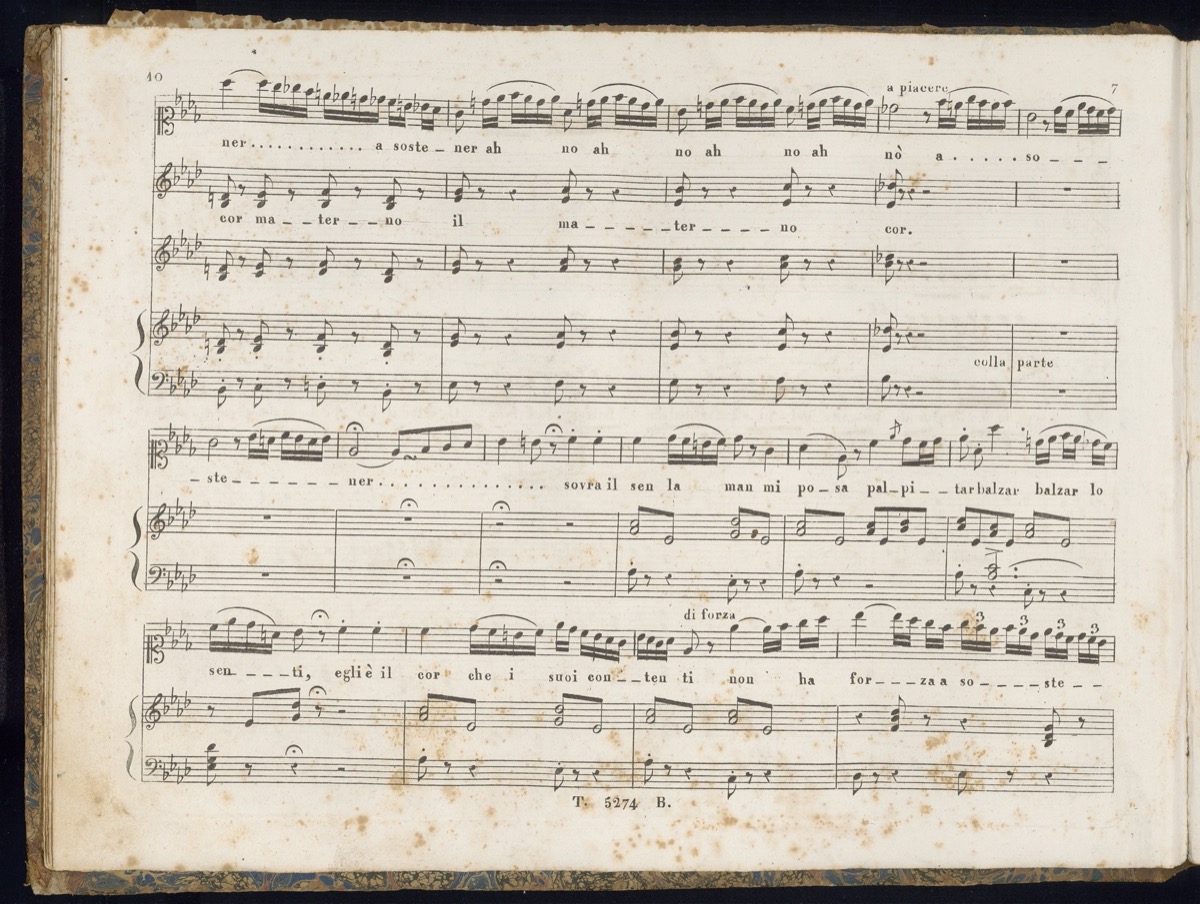 10 7
a piacere
ner............ a soste_ner ah no ah no ah no ah nò a.....so____
cor ma__ter__no il ma_____ter_____no cor.
colla parte
_ste______ner............... sovra il sen la man mi po_sa pal_pi__tar balzar balzar lo
di forza
3 3 3 3
sen____ti, egli è il cor che i suoi con__ten ti non ha for___za a so____ste__
T. 5274 B.